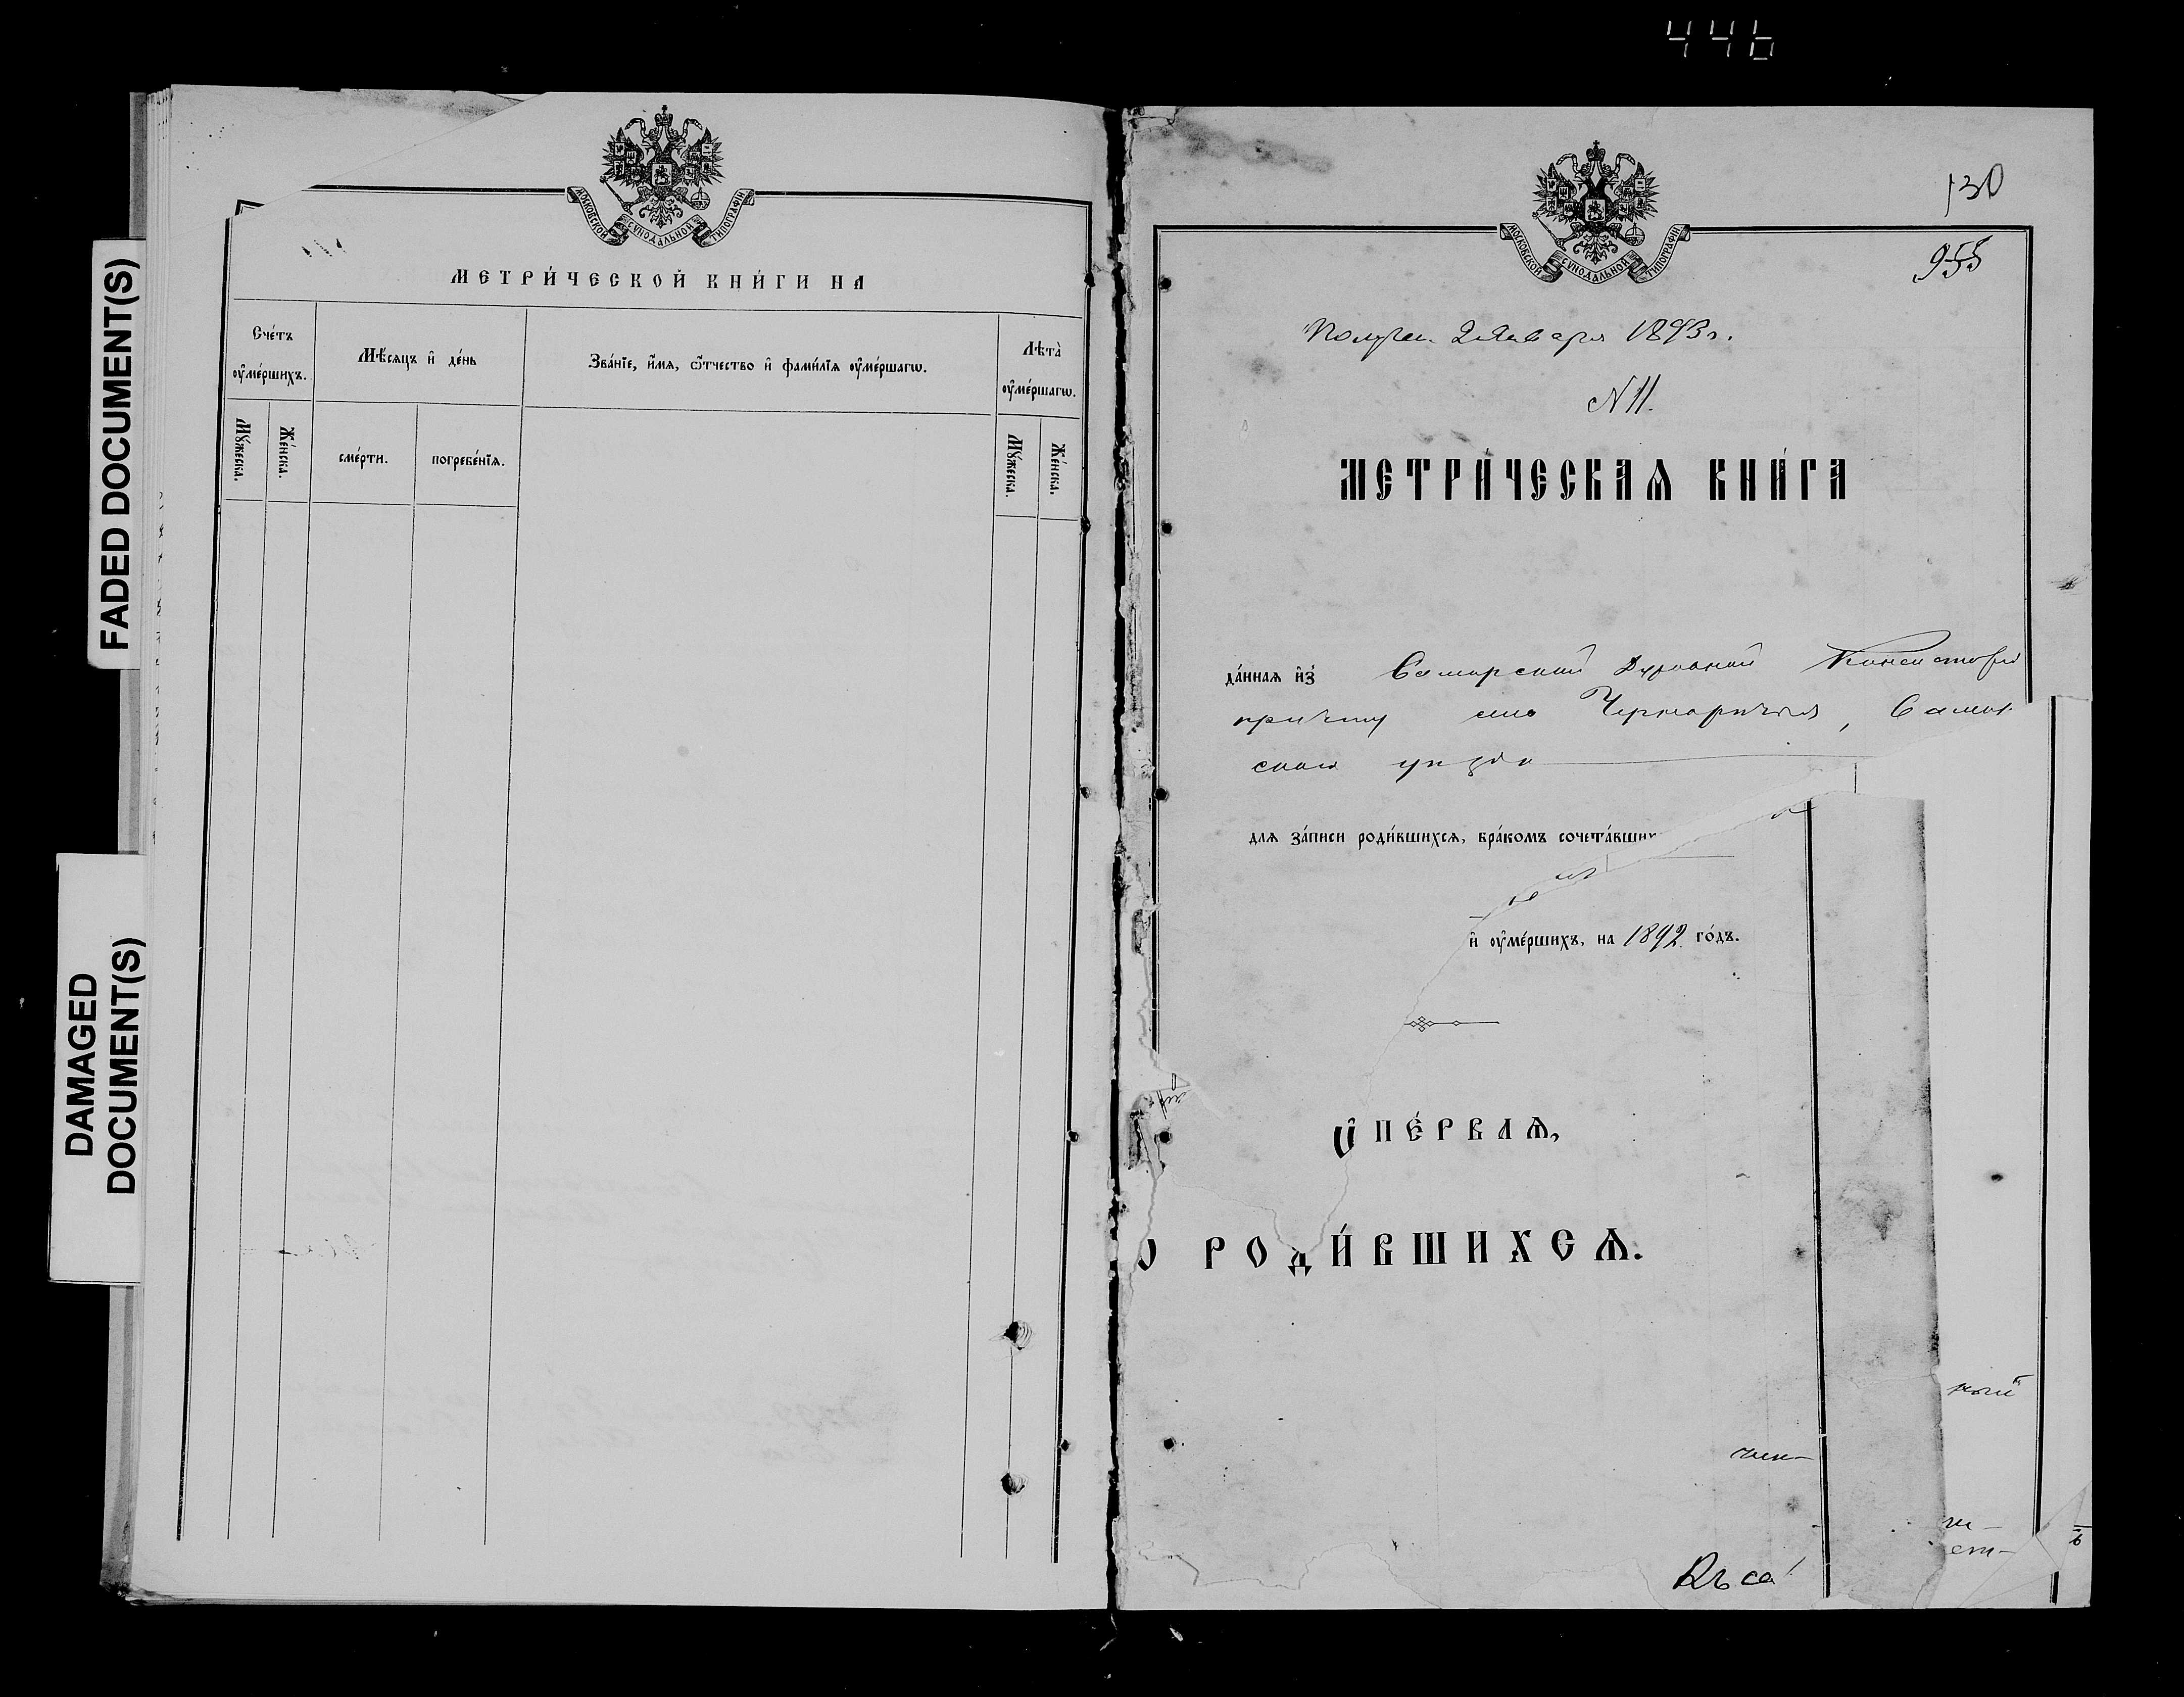 446
FADED DOCUMENT(S)
DAMAGED
DOCUMENT(S)
МОСКОВСКОЙ СѴНОДАЛЬНОЙ ТИПОГРАФІИ
МЕТРИ́ЧЕСКОЙ КНИ́ГИ НА
Сче́тъ
ᲂу҆ме́ршихъ.
Мѣ́сяцъ и҆ де́нь
Зва́нїе, и҆́мѧ, ѻ҆́тчество и҆ фами́лїѧ ᲂу҆ме́ршагѡ.
Лѣта̀
ᲂу҆ме́ршагѡ.
Мꙋ́жеска.
Же́нска.
сме́рти.
погребе́нїѧ.
Мꙋ́жеска.
Же́нска.
130
МОСКОВСКОЙ СѴНОДАЛЬНОЙ ТИПОГРАФІИ
955
Получен. 2 Января 1893 г.
N 11.
МЕТРИ́ЧЕСКАѦ КНИ́ГА
да́ннаѧ и҆з̾ Самарской Духовной Консистории
причту села Черноречья, Самар
скаго уезда
длѧ за́писи роди́вшихсѧ, бра́комъ сочета́вших
и҆ ᲂу҆ме́ршихъ, на 1892 го́дъ.
ПЕ́РВАѦ,
РОДИ́ВШИХСѦ.
ный
член-
ст-